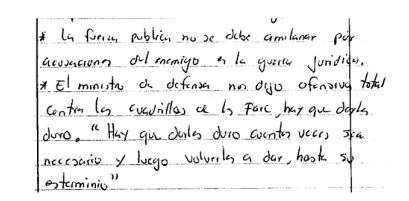 * La fuerza publica no se debe amilanar por
acusaciones del enemigo en la guerra juridica.
* El ministro de defensa nos dejo ofensiva total
contra las cuadrillas de las Farc, hay que darles
duro. "Hay que darles duro cuantas veces sea
necesario y luego volverles a dar, hasta su
exterminio"